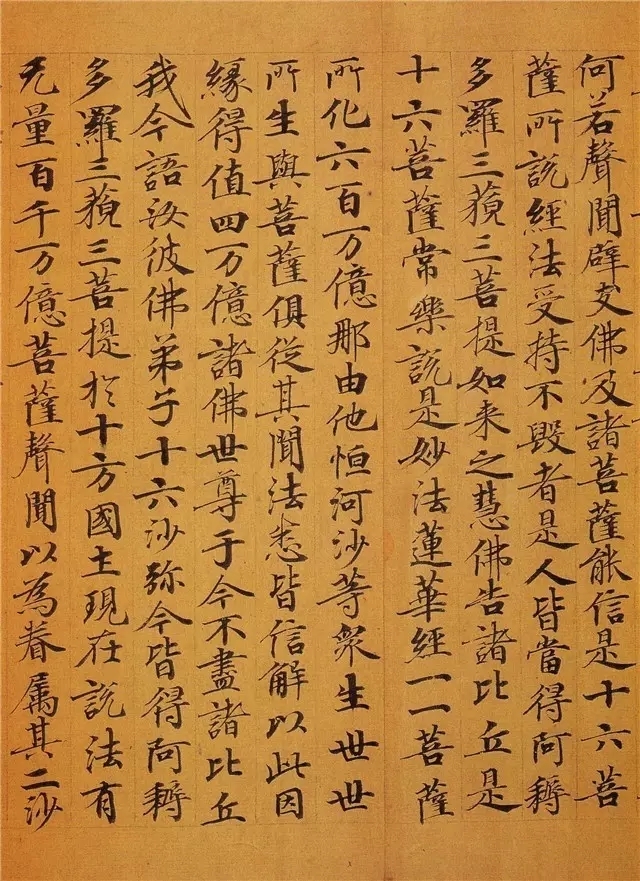 何若聲聞辟支佛及諸菩薩能信是十六菩
薩所說經法受持不毀者是人皆當得阿耨
多羅三藐三菩提如来之慧佛告諸比丘是
十六菩薩常樂說是妙法蓮華經一一菩薩
所化六百万億那由他恒河沙等眾生世世
所生與菩薩俱從其聞法悉皆信解以此因
緣得值四万億諸佛世尊于今不盡諸比丘
我今語汝彼佛弟子十六沙弥今皆得阿耨
多羅三藐三菩提於十方國土現在說法有
无量百千万億菩薩聲聞以為眷屬其二沙